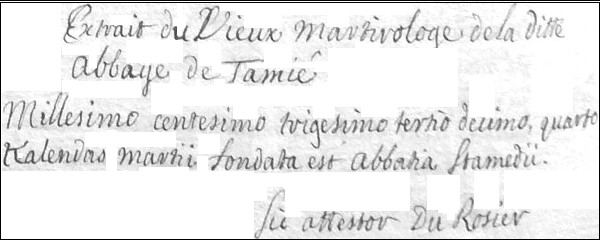 Extrait du Vieux Martirologe de la ditte
Abbaye de Tamié
Millesimo centesimo trigesimo tertio decimo, quarto
Kalendas martii fondata est abbatia Stamedii.
Sic attestor Du Rosier